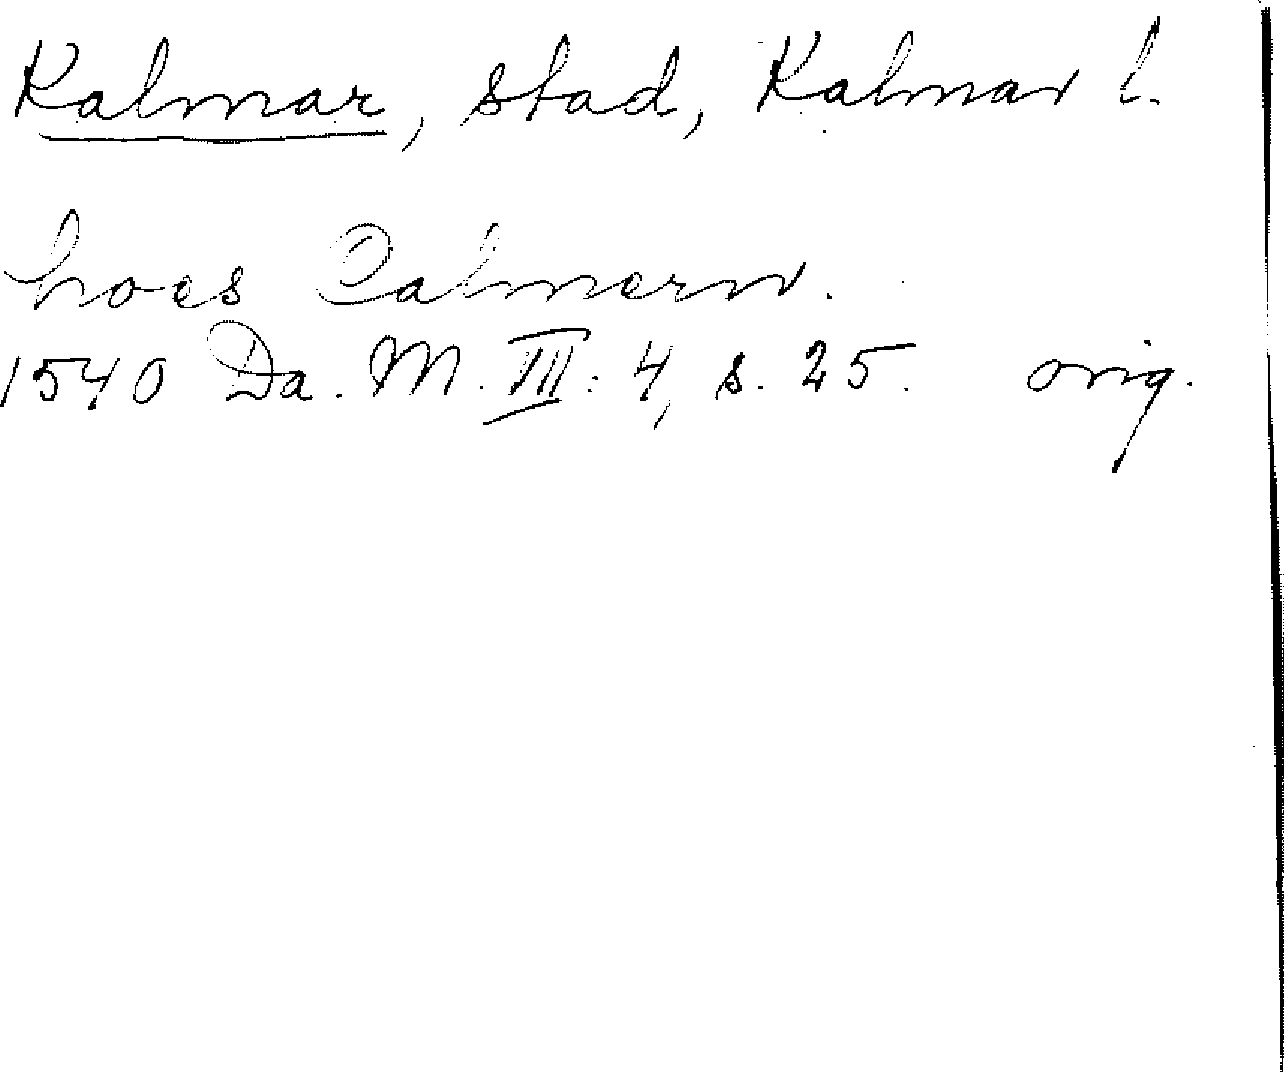 Kalmar, stad, Kalmar l.
hoes Calmern.
1540 Da. M. III: 4, s. 25. orig.